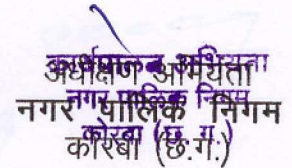 कार्यपालन अभियंता
अधीक्षण अभियंता
नगर पालिक निगम
नगर पालिक निगम
कोरबा (छ. ग.)
कोरबा (छ.ग.)